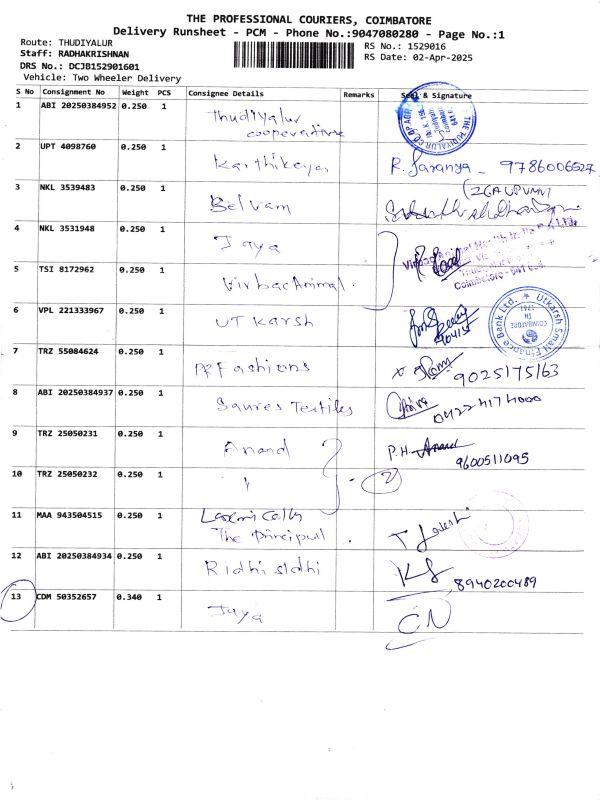 THE PROFESSIONAL COURIERS, COIMBATORE
Delivery Runsheet - PCM - Phone No.:9047080280 - Page No.:1
Route: THUDIYALUR
Staff: RADHAKRISHNAN
RS No.: 1529016
DRS No.: DCJB152901601
RS Date: 02-Apr-2025
Vehicle: Two Wheeler Delivery
S No Consignment No Weight PCS Consignee Details Remarks Seal & Signature
1 ABI 20250384952 0.250 1 Thudiyalur
cooperative
2 UPT 4098760 0.250 1 Karthikeya R. Saranya - 9786006527
3 NKL 3539483 0.250 1 Selvam
4 NKL 3531948 0.250 1 Jaya
5 TSI 8172962 0.250 1 Virbac Animal.
Coimbatore - 641
6 VPL 221333967 0.250 1 UT Karsh
Utkarsh Small Finance Bank Ltd.
COIMBATORE
TN
1761
7 TRZ 55084624 0.250 1 PR Fashions 9025175163
8 ABI 20250384937 0.250 1 Saures Textiles 0422 4174000
9 TRZ 25050231 0.250 1 Anand P.H. Anand
9600511095
10 TRZ 25050232 0.250 1 " 2
11 MAA 943504515 0.250 1
The Principal
12 ABI 20250384934 0.250 1 Ridhi sidhi 8940200489
13 CDM 50352657 0.340 1 Jaya CN